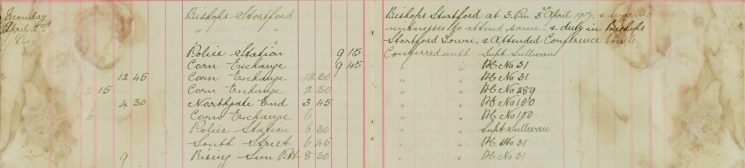 Monday Bishops Stortford Bishops Stortford at 3. Pm 3rd April
April 2nd " " witnesses to attend same: & duty in Bishops
Day Stortford Town, & Attended Conference
Police Station 9 15 Conferred with Supt Sullivan
Corn Exchange 9 45 " " PC No 31
12 45 Corn Exchange 12 50 " " PC No 31
2 15 Corn Exchange 2 30 " " PC No 289
4 30 Northgate End 3 45 " " PC No 100
6 Corn Exchange 6 " " PC No 100
Police Station 6 30 " " Supt Sullivan
South Street 6 45 " " PC No 31
9 Rising Sun P.H. 8 30 " " PC No 31